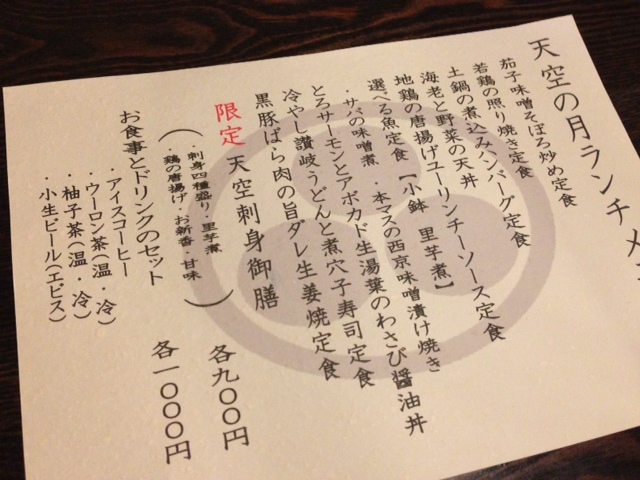 天空の月ランチメ
茄子味噌そぼろ炒め定食
若鶏の照り焼き定食
土鍋の煮込みハンバーグ定食
海老と野菜の天丼
地鶏の唐揚げユーリンチーソース定食
選べる魚定食【小鉢 里芋煮】
・サバの味噌煮 ・本マスの西京味噌漬け焼き
とろサーモンとアボカド生湯葉のわさび醤油丼
冷やし讃岐うどんと煮穴子寿司定食
黒豚ばら肉の旨ダレ生姜焼定食
限定 天空刺身御膳
(・刺身四種盛り・里芋煮
・鶏の唐揚げ・お新香・甘味)
各九〇〇円
お食事とドリンクのセット
各一〇〇〇円
・アイスコーヒー
・ウーロン茶(温・冷)
・柚子茶(温・冷)
・小生ビール(エビス)